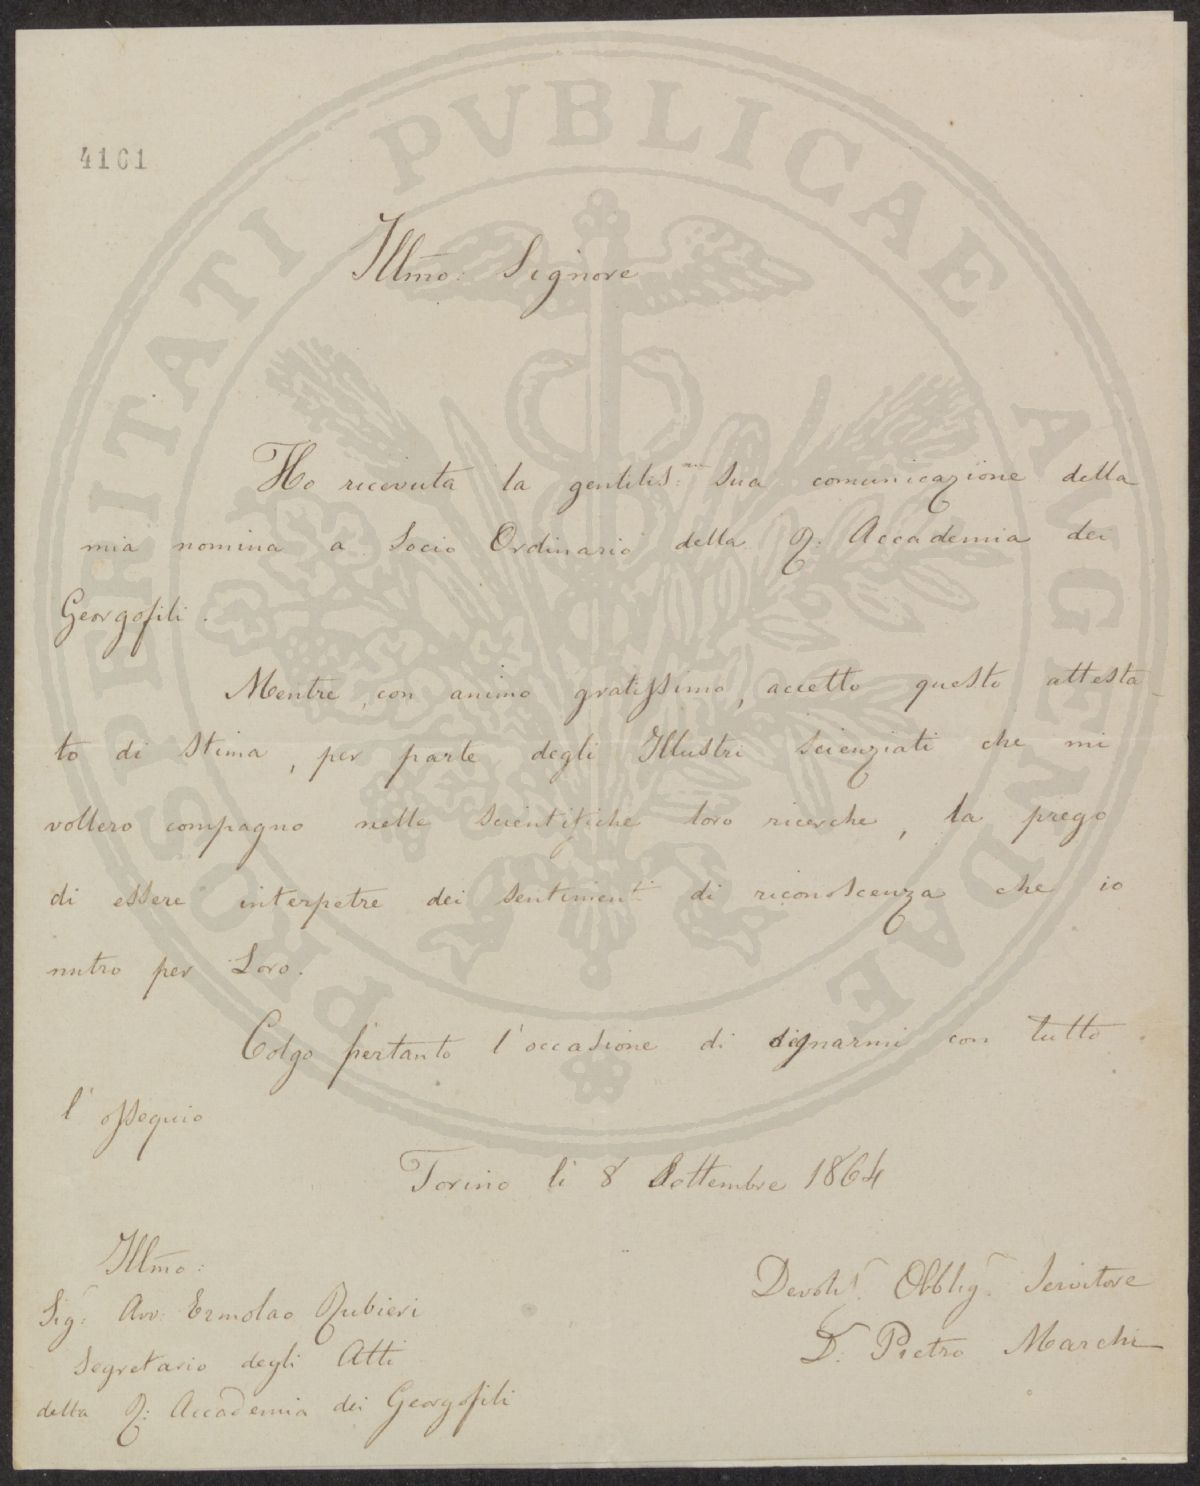 PROSPERITATI PUBLICAE AUGENDAE
4101
Illmo: Signore
Ho ricevuta la gentilis:ma Sua comunicazione della
mia nomina a Socio Ordinario della R. Accademia dei
Georgofili.
Mentre, con animo gratissimo, accetto questo attesta-
to di stima, per parte degli Illustri scienziati che mi
vollero compagno nelle scientifiche loro ricerche, la prego
di essere interpetre dei sentimenti di riconoscenza che io
nutro per Loro.
Colgo pertanto l'occasione di signarmi con tutto
l'ossequio
Torino li 8 Settembre 1864
Illmo:
Sigr: Avv: Ermolao Rubieri
Segretario degli Atti
della R: Accademia dei Georgofili
Obbligr. Servitore
D. Pietro Marchi